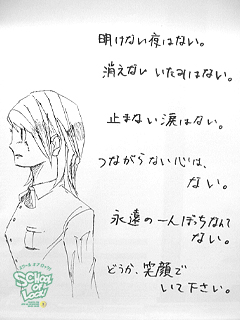 明けない夜はない。
消えない いたみはない。
止まない涙はない。
つながらない心は、
ない。
永遠の一人ぼっちなんて
ない。
どうか、笑顔で
いて下さい。
SCHOOL
OF
LOCK!